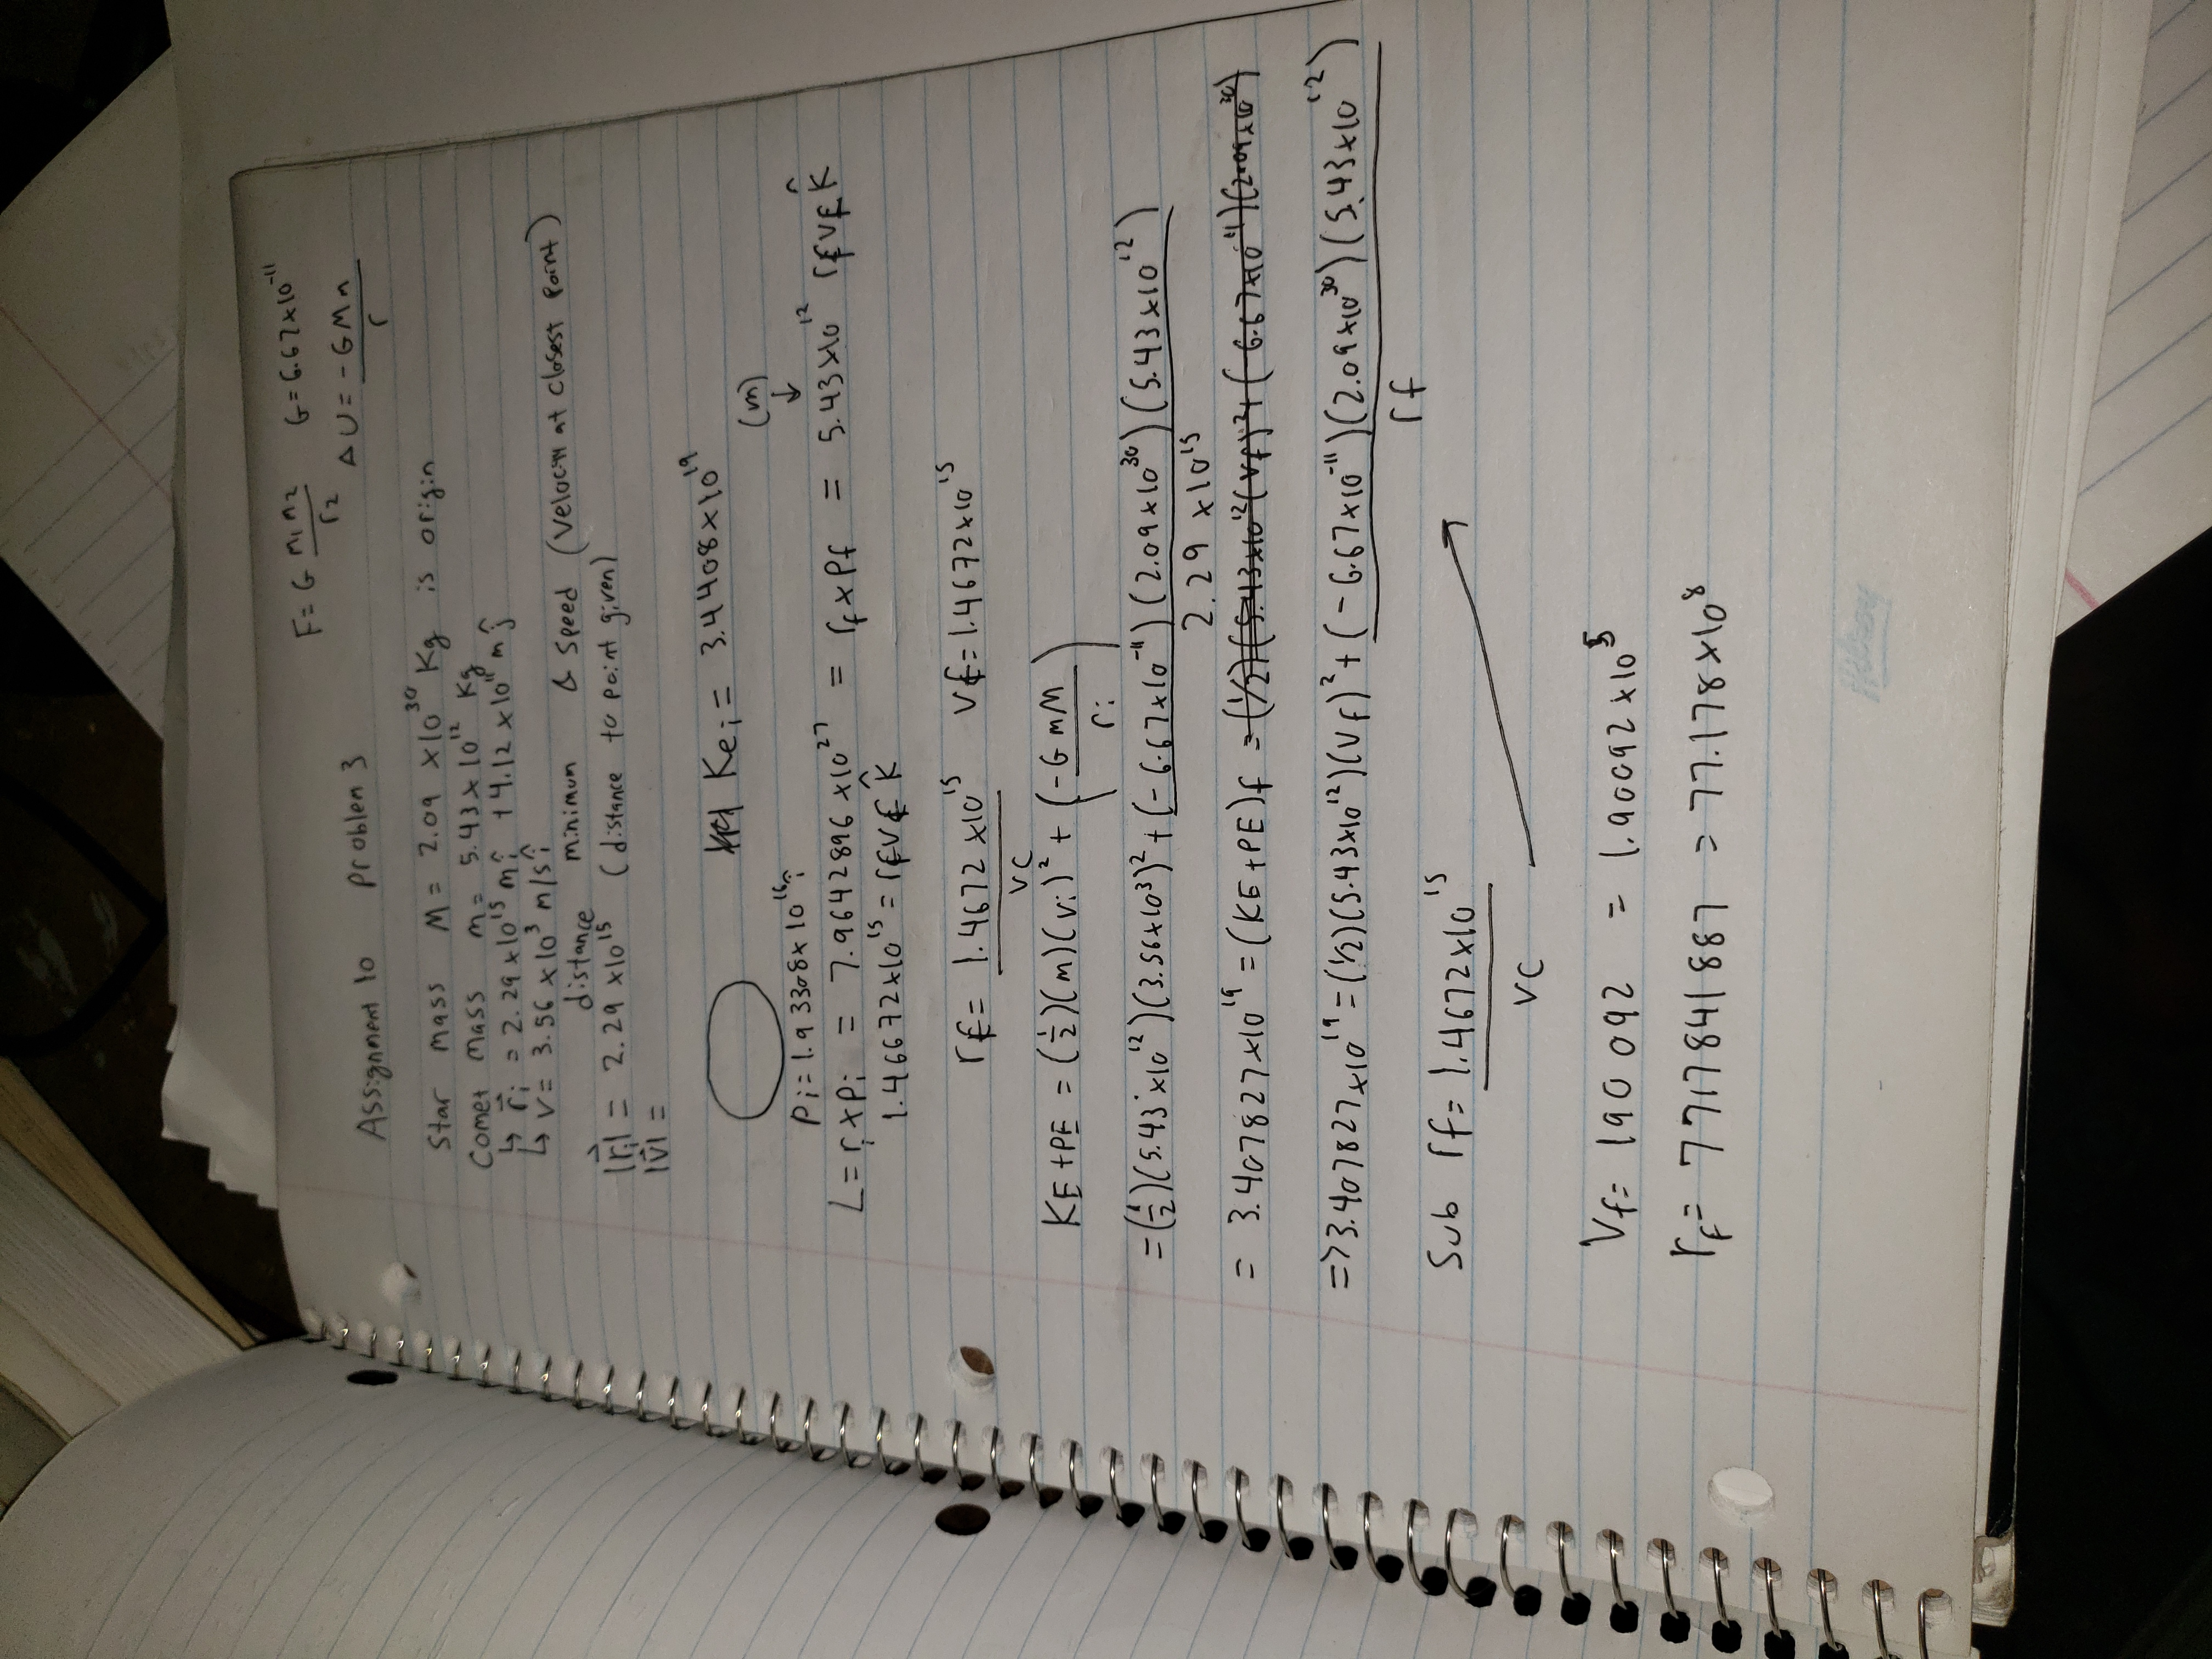 F = G m₁m₂ / r₂   G = 6.67×10⁻¹¹
ΔU = -GMm / r
Assignment 10   Problem 3
Star mass M = 2.09 ×10³⁰ Kg is origin
Comet mass m = 5.43×10¹² Kg
↳ r⃗ᵢ = 2.29×10¹⁵ m î + 4.12×10¹¹ m ĵ
↳ v = 3.56 ×10³ m/s î
distance minimum & speed (velocity at closest point)
|r⃗ᵢ| = 2.29 ×10¹⁵ (distance to point given)
|v⃗| =
Keᵢ = 3.4408×10¹⁹
(m)
↓
Pᵢ = 1.93308×10¹⁶ î
L = rᵢ×pᵢ = 7.9642896×10²⁷ = r_f × P_f = 5.43×10¹² r_f v_f K̂
1.46672×10¹⁵ = r_f v_f K̂
r_f = 1.4672×10¹⁵ / vc   v_f = 1.4672×10¹⁵
KE + PE = (½)(m)(vᵢ)² + (-GmM / rᵢ)
= (½)(5.43×10¹²)(3.56×10³)² + (-6.67×10⁻¹¹)(2.09×10³⁰)(5.43×10¹²) / 2.29 ×10¹⁵
= 3.407827×10¹⁹ = (KE+PE)f = (½)(5.43×10¹²(v_f)²+(-6.67×10⁻¹¹)(2.09×10³⁰)
=> 3.407827×10¹⁹ = (½)(5.43×10¹²)(v_f)² + (-6.67×10⁻¹¹)(2.09×10³⁰)(5.43×10¹²) / r_f
Sub r_f = 1.4672×10¹⁵ / vc
V_f = 190 092 = 1.90092×10⁵
r_f = 7717841887 = 77.178×10⁸